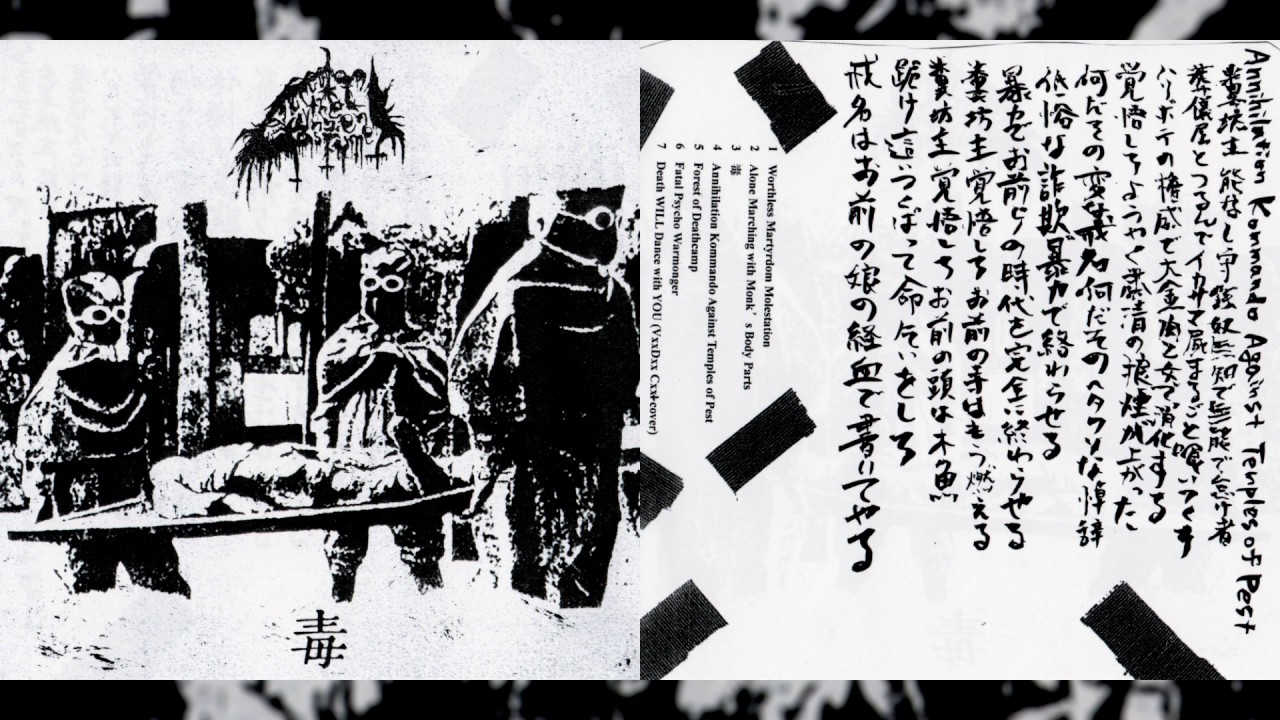 毒
Annihilation Kommando Against Temples of Pest
糞坊主 能なし守銭奴無知で無能で怠け者
葬儀屋とつるんでイカサマ屍まるごと喰いつくす
ハリボテの権威で大金酒と女で消化する
覚悟しろようやく粛清の狼煙が上がった
何だその変な戒名何だそのヘタクソな悼辞
低俗な詐欺暴力で終わらせる
暴力でお前らの時代を完全に終わらせてやる
糞坊主覚悟しろお前の寺はもう燃える
糞坊主覚悟しろお前の頭は木魚
跪け這いつくばって命乞いをしろ
戒名はお前の娘の経血で書いてやる
1 Worthless Martyrdom Molestation
2 Alone Marching with Monk's Body Parts
3 毒
4 Annihilation Kommando Against Temples of Pest
5 Forest of Deathcamp
6 Fatal Psycho Warmonger
7 Death WILL Dance with YOU (VxxDxx Cxx cover)